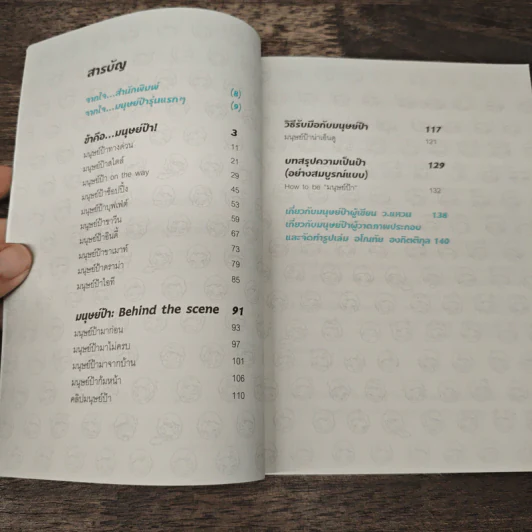 สารบัญ
จากใจ...สำนักพิมพ์ (8)
จากใจ...มนุษย์ป้ารุ่นแรกๆ (9)
ข้าคือ...มนุษย์ป้า! 3
มนุษย์ป้าทางด่วน 11
มนุษย์ป้าสไตล์ 21
มนุษย์ป้า on the way 29
มนุษย์ป้าช้อปปิ้ง 45
มนุษย์ป้าบุฟเฟ่ต์ 53
มนุษย์ป้าซาวัน 59
มนุษย์ป้าอินดี้ 67
มนุษย์ป้าชาเมาท์ 73
มนุษย์ป้าดราม่า 79
มนุษย์ป้าไอที 85
มนุษย์ป้า: Behind the scene 91
มนุษย์ป้ามาก่อน 93
มนุษย์ป้ามาไม่ครบ 97
มนุษย์ป้ามาจากบ้าน 101
มนุษย์ป้าก้มหน้า 106
คลิปมนุษย์ป้า 110
วิธีรับมือกับมนุษย์ป้า 117
มนุษย์ป้าน่าเอ็นดู 121
บทสรุปความเป็นป้า 129
(อย่างสมบูรณ์แบบ)
How to be "มนุษย์ป้า" 132
เกี่ยวกับมนุษย์ป้าผู้เขียน ว.แหวน 138
เกี่ยวกับมนุษย์ป้าผู้วาดภาพประกอบ
และจัดทำรูปเล่ม อโณทัย องกิตติกุล 140